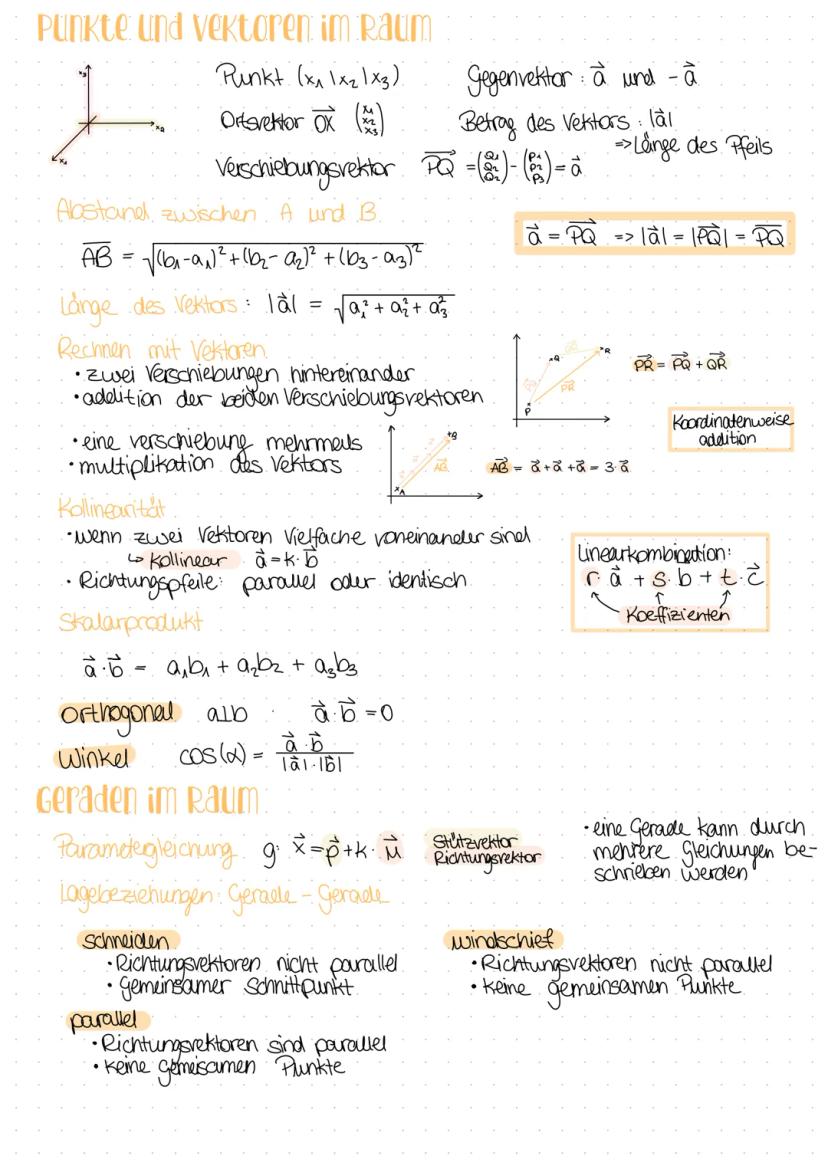 Punkte und Vektoren im Raum
x₃
x₂
x₁
Punkt (x₁ | x₂ | x₃)
Gegenvektor: a⃗ und - a⃗
Ortsvektor OX⃗ (x₁ x₂ x₃)
Betrag des Vektors: |a⃗|
=> Länge des Pfeils
Verschiebungsvektor PQ⃗ = (Q₁ Q₂ Q₂) - (P₁ P₂ P₃) = a⃗
Abstand zwischen A und B
a⃗ = PQ⃗ => |a⃗| = |PQ⃗| = P̅Q̅
A̅B̅ = √(b₁-a₁)² + (b₂-a₂)² + (b₃-a₃)²
Länge des Vektors: |a⃗| = √a₁² + a₂² + a₃²
Rechnen mit Vektoren
• zwei Verschiebungen hintereinander
• addition der beiden Verschiebungsvektoren
P
Q
R
PR⃗
PR⃗ = PQ⃗ + QR⃗
Koordinatenweise
addition
• eine verschiebung mehrmals
• multiplikation des Vektors
A
B
AB⃗
AB⃗ = a⃗ + a⃗ + a⃗ = 3·a⃗
Kollinearität
• wenn zwei Vektoren Vielfache voneinander sind
↳ kollinear a⃗ = k·b⃗
• Richtungspfeile: parallel oder identisch
Linearkombination:
r·a⃗ + s·b + t·c⃗
Koeffizienten
Skalarprodukt
a⃗·b⃗ = a₁b₁ + a₂b₂ + a₃b₃
orthogonal a⊥b a⃗·b⃗ = 0
Winkel cos(α) = a⃗·b⃗ / |a⃗|·|b⃗|
Geraden im Raum
Parametergleichung g: x⃗ = p⃗ + k·u⃗
Stützvektor
Richtungsvektor
• eine Gerade kann durch
mehrere Gleichungen be-
schrieben werden
Lagebeziehungen: Gerade - Gerade
schneiden
• Richtungsvektoren nicht parallel
• Gemeinsamer Schnittpunkt
windschief
• Richtungsvektoren nicht parallel
• keine gemeinsamen Punkte
parallel
• Richtungsvektoren sind parallel
• keine gemeisamen Punkte